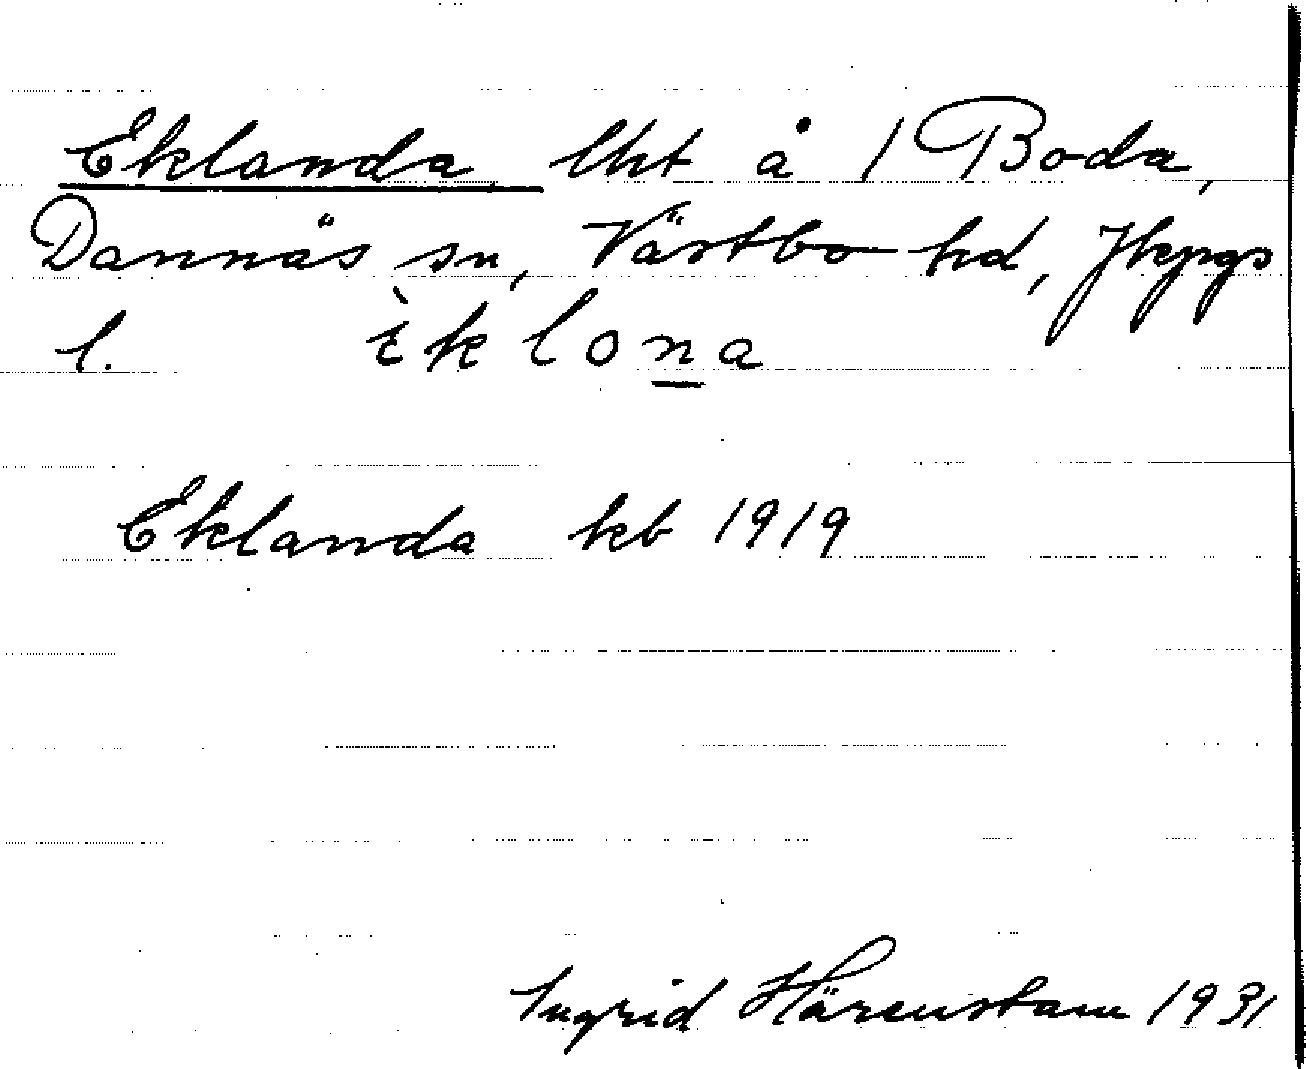 Eklanda lht å 1 Boda,
Dannäs sn, Västbo hd, Jkpgs
l. èklona
Eklanda kb 1919
Ingrid Härenstam 1931